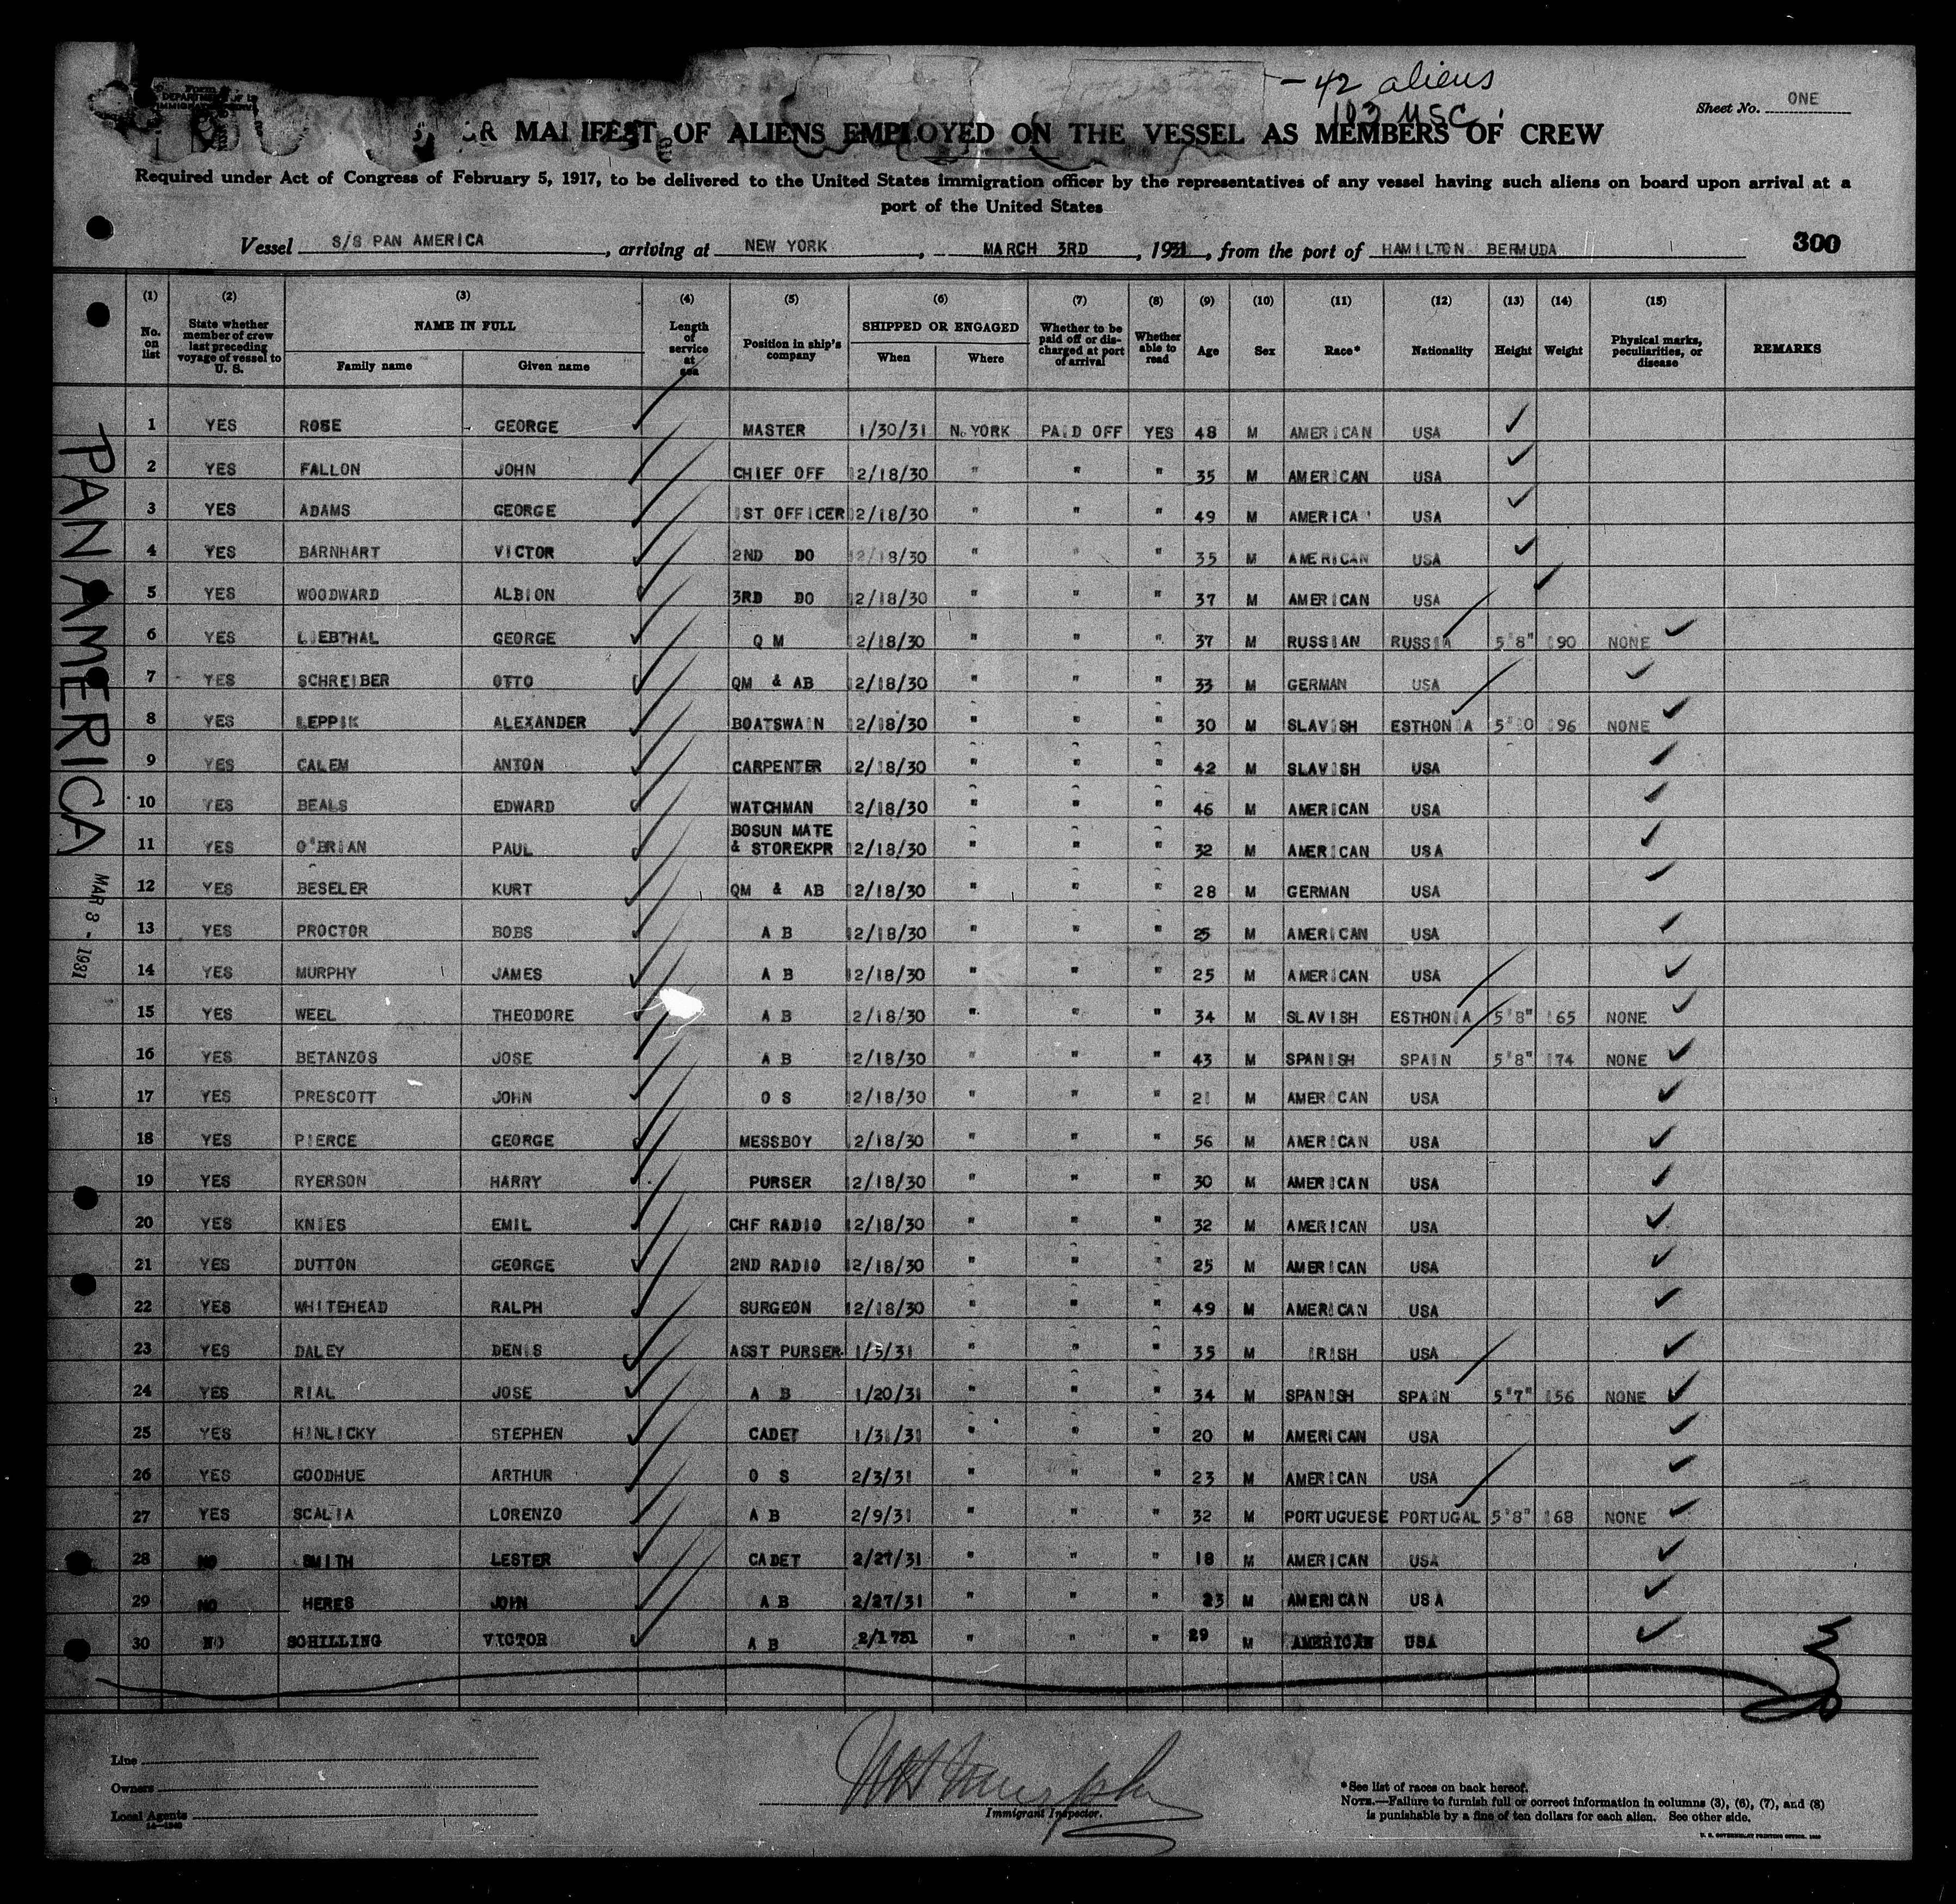 - 42 aliens
103 USC
Sheet No. ONE
MANIFEST OF ALIENS EMPLOYED ON THE VESSEL AS MEMBERS OF CREW
Required under Act of Congress of February 5, 1917, to be delivered to the United States immigration officer by the representatives of any vessel having such aliens on board upon arrival at a
port of the United States
Vessel S/S PAN AMERICA, arriving at NEW YORK, MARCH 3RD, 1931, from the port of HAMILTON BERMUDA
300
(1) (2) (3) (4) (5) (6) (7) (8) (9) (10) (11) (12) (13) (14) (15)
No. on list
State whether member of crew last preceding voyage of vessel to U. S.
NAME IN FULL
Family name Given name
Length of service at sea
Position in ship's company
SHIPPED OR ENGAGED
When Where
Whether to be paid off or discharged at port of arrival
Whether able to read
Age Sex Race* Nationality Height Weight
Physical marks, peculiarities, or disease
REMARKS
1 YES ROSE GEORGE MASTER 1/30/31 N. YORK PAID OFF YES 48 M AMERICAN USA
2 YES FALLON JOHN CHIEF OFF 12/18/30 " " " 35 M AMERICAN USA
3 YES ADAMS GEORGE 1ST OFFICER 12/18/30 " " " 49 M AMERICA USA
4 YES BARNHART VICTOR 2ND DO 12/18/30 " " " 35 M AMERICAN USA
5 YES WOODWARD ALBION 3RD DO 12/18/30 " " " 37 M AMERICAN USA
6 YES LIEBTHAL GEORGE Q M 12/18/30 " " " 37 M RUSSIAN RUSSIA 5'8" 190 NONE
7 YES SCHREIBER OTTO QM & AB 12/18/30 " " " 33 M GERMAN USA
8 YES LEPPIK ALEXANDER BOATSWAIN 12/18/30 " " " 30 M SLAVISH ESTHONIA 5'10 196 NONE
9 YES CALEM ANTON CARPENTER 12/18/30 " " " 42 M SLAVISH USA
10 YES BEALS EDWARD WATCHMAN 12/18/30 " " " 46 M AMERICAN USA
11 YES O'BRIAN PAUL BOSUN MATE & STOREKPR 12/18/30 " " " 32 M AMERICAN USA
12 YES BESELER KURT QM & AB 12/18/30 " " " 28 M GERMAN USA
13 YES PROCTOR BOBS A B 12/18/30 " " " 25 M AMERICAN USA
14 YES MURPHY JAMES A B 12/18/30 " " " 25 M AMERICAN USA
15 YES WEEL THEODORE A B 12/18/30 " " " 34 M SLAVISH ESTHONIA 5'8" 165 NONE
16 YES BETANZOS JOSE A B 12/18/30 " " " 43 M SPANISH SPAIN 5'8" 174 NONE
17 YES PRESCOTT JOHN O S 12/18/30 " " " 21 M AMERICAN USA
18 YES PIERCE GEORGE MESSBOY 12/18/30 " " " 56 M AMERICAN USA
19 YES RYERSON HARRY PURSER 12/18/30 " " " 30 M AMERICAN USA
20 YES KNIES EMIL CHF RADIO 12/18/30 " " " 32 M AMERICAN USA
21 YES DUTTON GEORGE 2ND RADIO 12/18/30 " " " 25 M AMERICAN USA
22 YES WHITEHEAD RALPH SURGEON 12/18/30 " " " 49 M AMERICAN USA
23 YES DALEY DENIS ASST PURSER 1/5/31 " " " 35 M IRISH USA
24 YES RIAL JOSE A B 1/20/31 " " " 34 M SPANISH SPAIN 5'7" 156 NONE
25 YES HINLICKY STEPHEN CADET 1/31/31 " " " 20 M AMERICAN USA
26 YES GOODHUE ARTHUR O S 2/3/31 " " " 23 M AMERICAN USA
27 YES SCALIA LORENZO A B 2/9/31 " " " 32 M PORTUGUESE PORTUGAL 5'8" 168 NONE
28 NO SMITH LESTER CADET 2/27/31 " " " 18 M AMERICAN USA
29 NO HERES JOHN A B 2/27/31 " " " 23 M AMERICAN USA
30 NO SCHILLING VICTOR A B " " " 29 M AMERICAN USA
PAN AMERICA
MAR 3 - 1931
Line
Owners
Local Agents
Immigrant Inspector.
*See list of races on back hereof.
NOTE.—Failure to furnish full or correct information in columns (3), (6), (7), and (8)
is punishable by a fine of ten dollars for each alien. See other side.